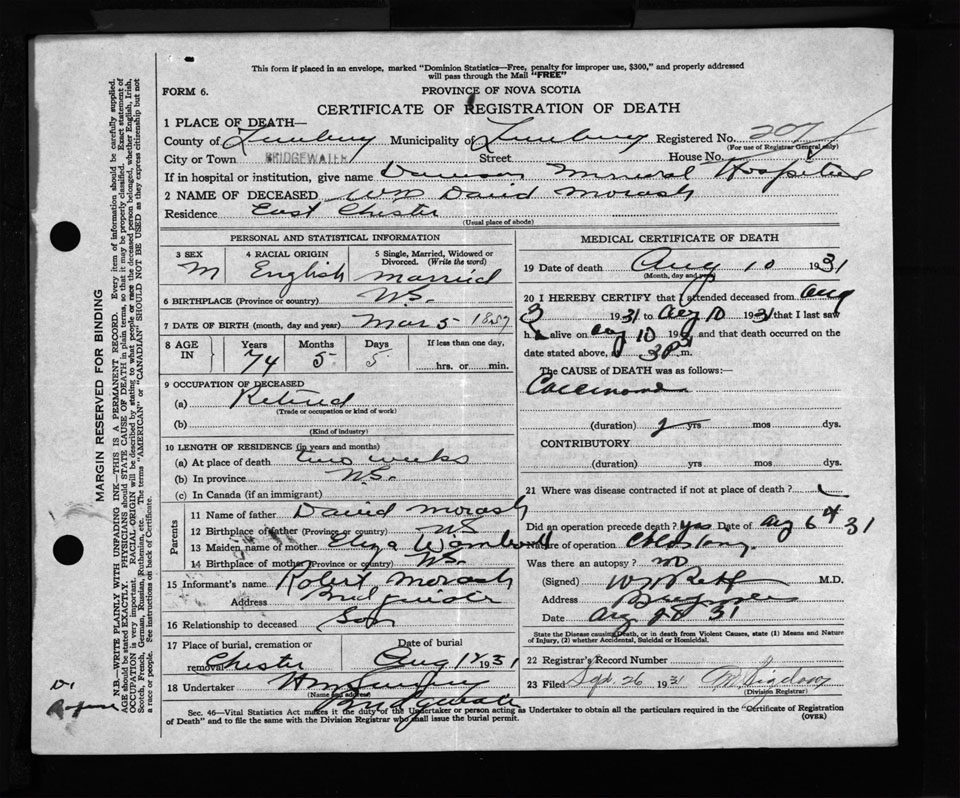 This form if placed in an envelope, marked "Dominion Statistics—Free, penalty for improper use, $300," and properly addressed
will pass through the Mail "FREE"
FORM 6.
PROVINCE OF NOVA SCOTIA
CERTIFICATE OF REGISTRATION OF DEATH
1 PLACE OF DEATH—
County of Lunenburg Municipality of Lunenburg Registered No. 207
(For use of Registrar General only)
City or Town BRIDGEWATER Street House No.
If in hospital or institution, give name Dawson Memorial Hospital
2 NAME OF DECEASED Wm David Morash
Residence East Chester
(Usual place of abode)
PERSONAL AND STATISTICAL INFORMATION
3 SEX 4 RACIAL ORIGIN 5 Single, Married, Widowed or Divorced. (Write the word)
M English Married
6 BIRTHPLACE (Province or country) N.S.
7 DATE OF BIRTH (month, day and year) Mar 5 1857
8 AGE IN Years Months Days If less than one day,
74 5 5 hrs. or min.
9 OCCUPATION OF DECEASED
(a) Retired
(Trade or occupation or kind of work)
(b)
(Kind of industry)
10 LENGTH OF RESIDENCE (in years and months)
(a) At place of death two weeks
(b) In province N.S.
(c) In Canada (if an immigrant)
Parents
11 Name of father David Morash
12 Birthplace of father (Province or country) N.S.
13 Maiden name of mother Eliza
14 Birthplace of mother (Province or country) N.S.
15 Informant's name Robert Morash
Address
16 Relationship to deceased Son
17 Place of burial, cremation or removal Chester Date of burial Aug 12 1931
18 Undertaker
(Name and address)
Bridgewater
MEDICAL CERTIFICATE OF DEATH
19 Date of death Aug 10 1931
(Month, day and year)
20 I HEREBY CERTIFY that I attended deceased from Aug
3 1931 to Aug 10 1931 that I last saw
h alive on Aug 10 and that death occurred on the
date stated above, at 3 P m.
The CAUSE of DEATH was as follows:—
Carcinoma
(duration) 2 yrs mos dys.
CONTRIBUTORY
(duration) yrs mos dys.
21 Where was disease contracted if not at place of death?
Did an operation precede death? yes Date of Aug 6th 31
Nature of operation
Was there an autopsy? no
(Signed) M.D.
Address
Date Aug 31
State the Disease causing Death, or in death from Violent Causes, state (1) Means and Nature
of Injury, (2) whether Accidental, Suicidal or Homicidal.
22 Registrar's Record Number
23 Filed Sept 26 1931 M Bigelow
(Division Registrar)
Sec. 46—Vital Statistics Act makes it the duty of the Undertaker or person acting as Undertaker to obtain all the particulars required in the "Certificate of Registration
of Death" and to file the same with the Division Registrar who shall issue the burial permit.
(OVER)
MARGIN RESERVED FOR BINDING
N.B.—WRITE PLAINLY WITH UNFADING INK—THIS IS A PERMANENT RECORD. Every item of information should be carefully supplied.
AGE should be stated EXACTLY. PHYSICIANS should STATE CAUSE OF DEATH in plain terms, so that it may be properly classified. Exact statement of
OCCUPATION is very important. RACIAL ORIGIN will be described by stating to what people or race the deceased person belonged, whether English, Irish,
Scotch, French, German, Russian, Ruthenian, etc. The terms "AMERICAN" or "CANADIAN" SHOULD NOT BE USED as they express citizenship but not
a race or people. See instructions on back of Certificate.